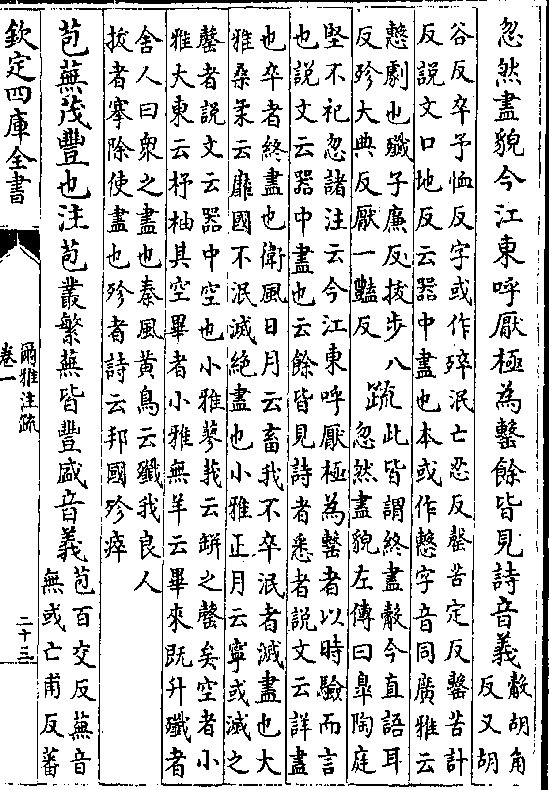 忽然盡貌今江東呼厭極為罄餘皆見詩音義 㱿胡角反又胡
谷反卒予恤反字或作䘹泯亡忍反罄苦定反罊苦計
反說文口地反云器中盡也本或作憗字音同廣雅云
憗劇也殲子廉反拔步八
反殄大典反厭一豔反
疏 此皆謂終盡㱿今直語耳
忽然盡貌左傳曰臯陶庭
堅不祀忽諸注云今江東呼厭極為罄者以時驗而言
也說文云器中盡也云餘皆見詩者悉者說文云詳盡
也卒者終盡也衛風日月云畜我不卒泯者滅盡也大
雅桑柔云靡國不泯滅絕盡也小雅正月云寧或滅之
罄者說文云器中空也小雅蓼莪云缾之罄矣空者小
雅大東云杼柚其空畢者小雅無羊云畢來既升殲者
舍人曰衆之盡也秦風黃鳥云殲我良人
拔者搴除使盡也殄者詩云邦國殄瘁
苞蕪茂豐也注苞叢繁蕪皆豐盛音義 苞百交反蕪音無或亡甫反蕃
欽定四庫全書
爾雅注疏
卷一
二十三